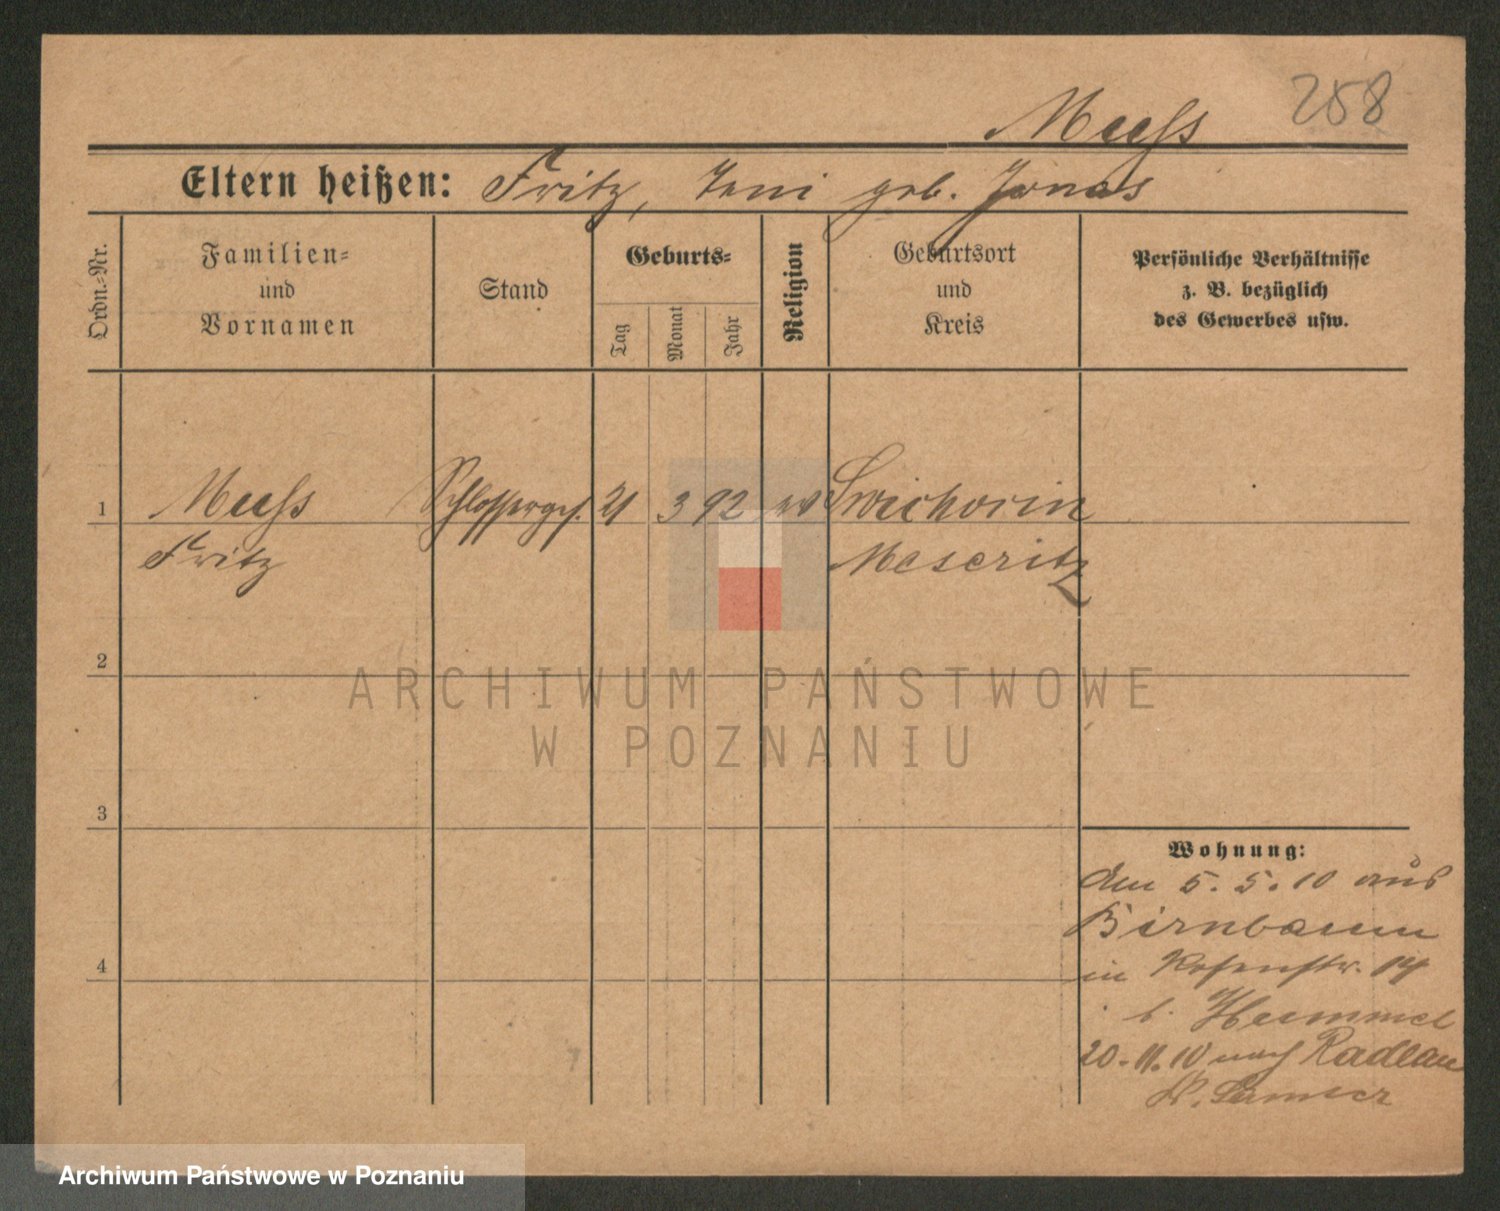 258
Muhs
Eltern heißen: Fritz, Jeni geb. Jonas
Ordn.-Nr.
Familien-
und
Vornamen
Stand
Geburts-
Tag
Monat
Jahr
Religion
Geburtsort
und
Kreis
Persönliche Verhältnisse
z. B. bezüglich
des Gewerbes usw.
1 Muhs Schlosserges. 21 3 92 ev Swichocin
Fritz Meseritz
2
3
4
ARCHIWUM PAŃSTWOWE
W POZNANIU
Wohnung:
Am 5.5.10 aus
Birnbaum
in Rosenstr. 14
b. Hummel
20.11.10 nach Radlau
Kr. Samter
Archiwum Państwowe w Poznaniu